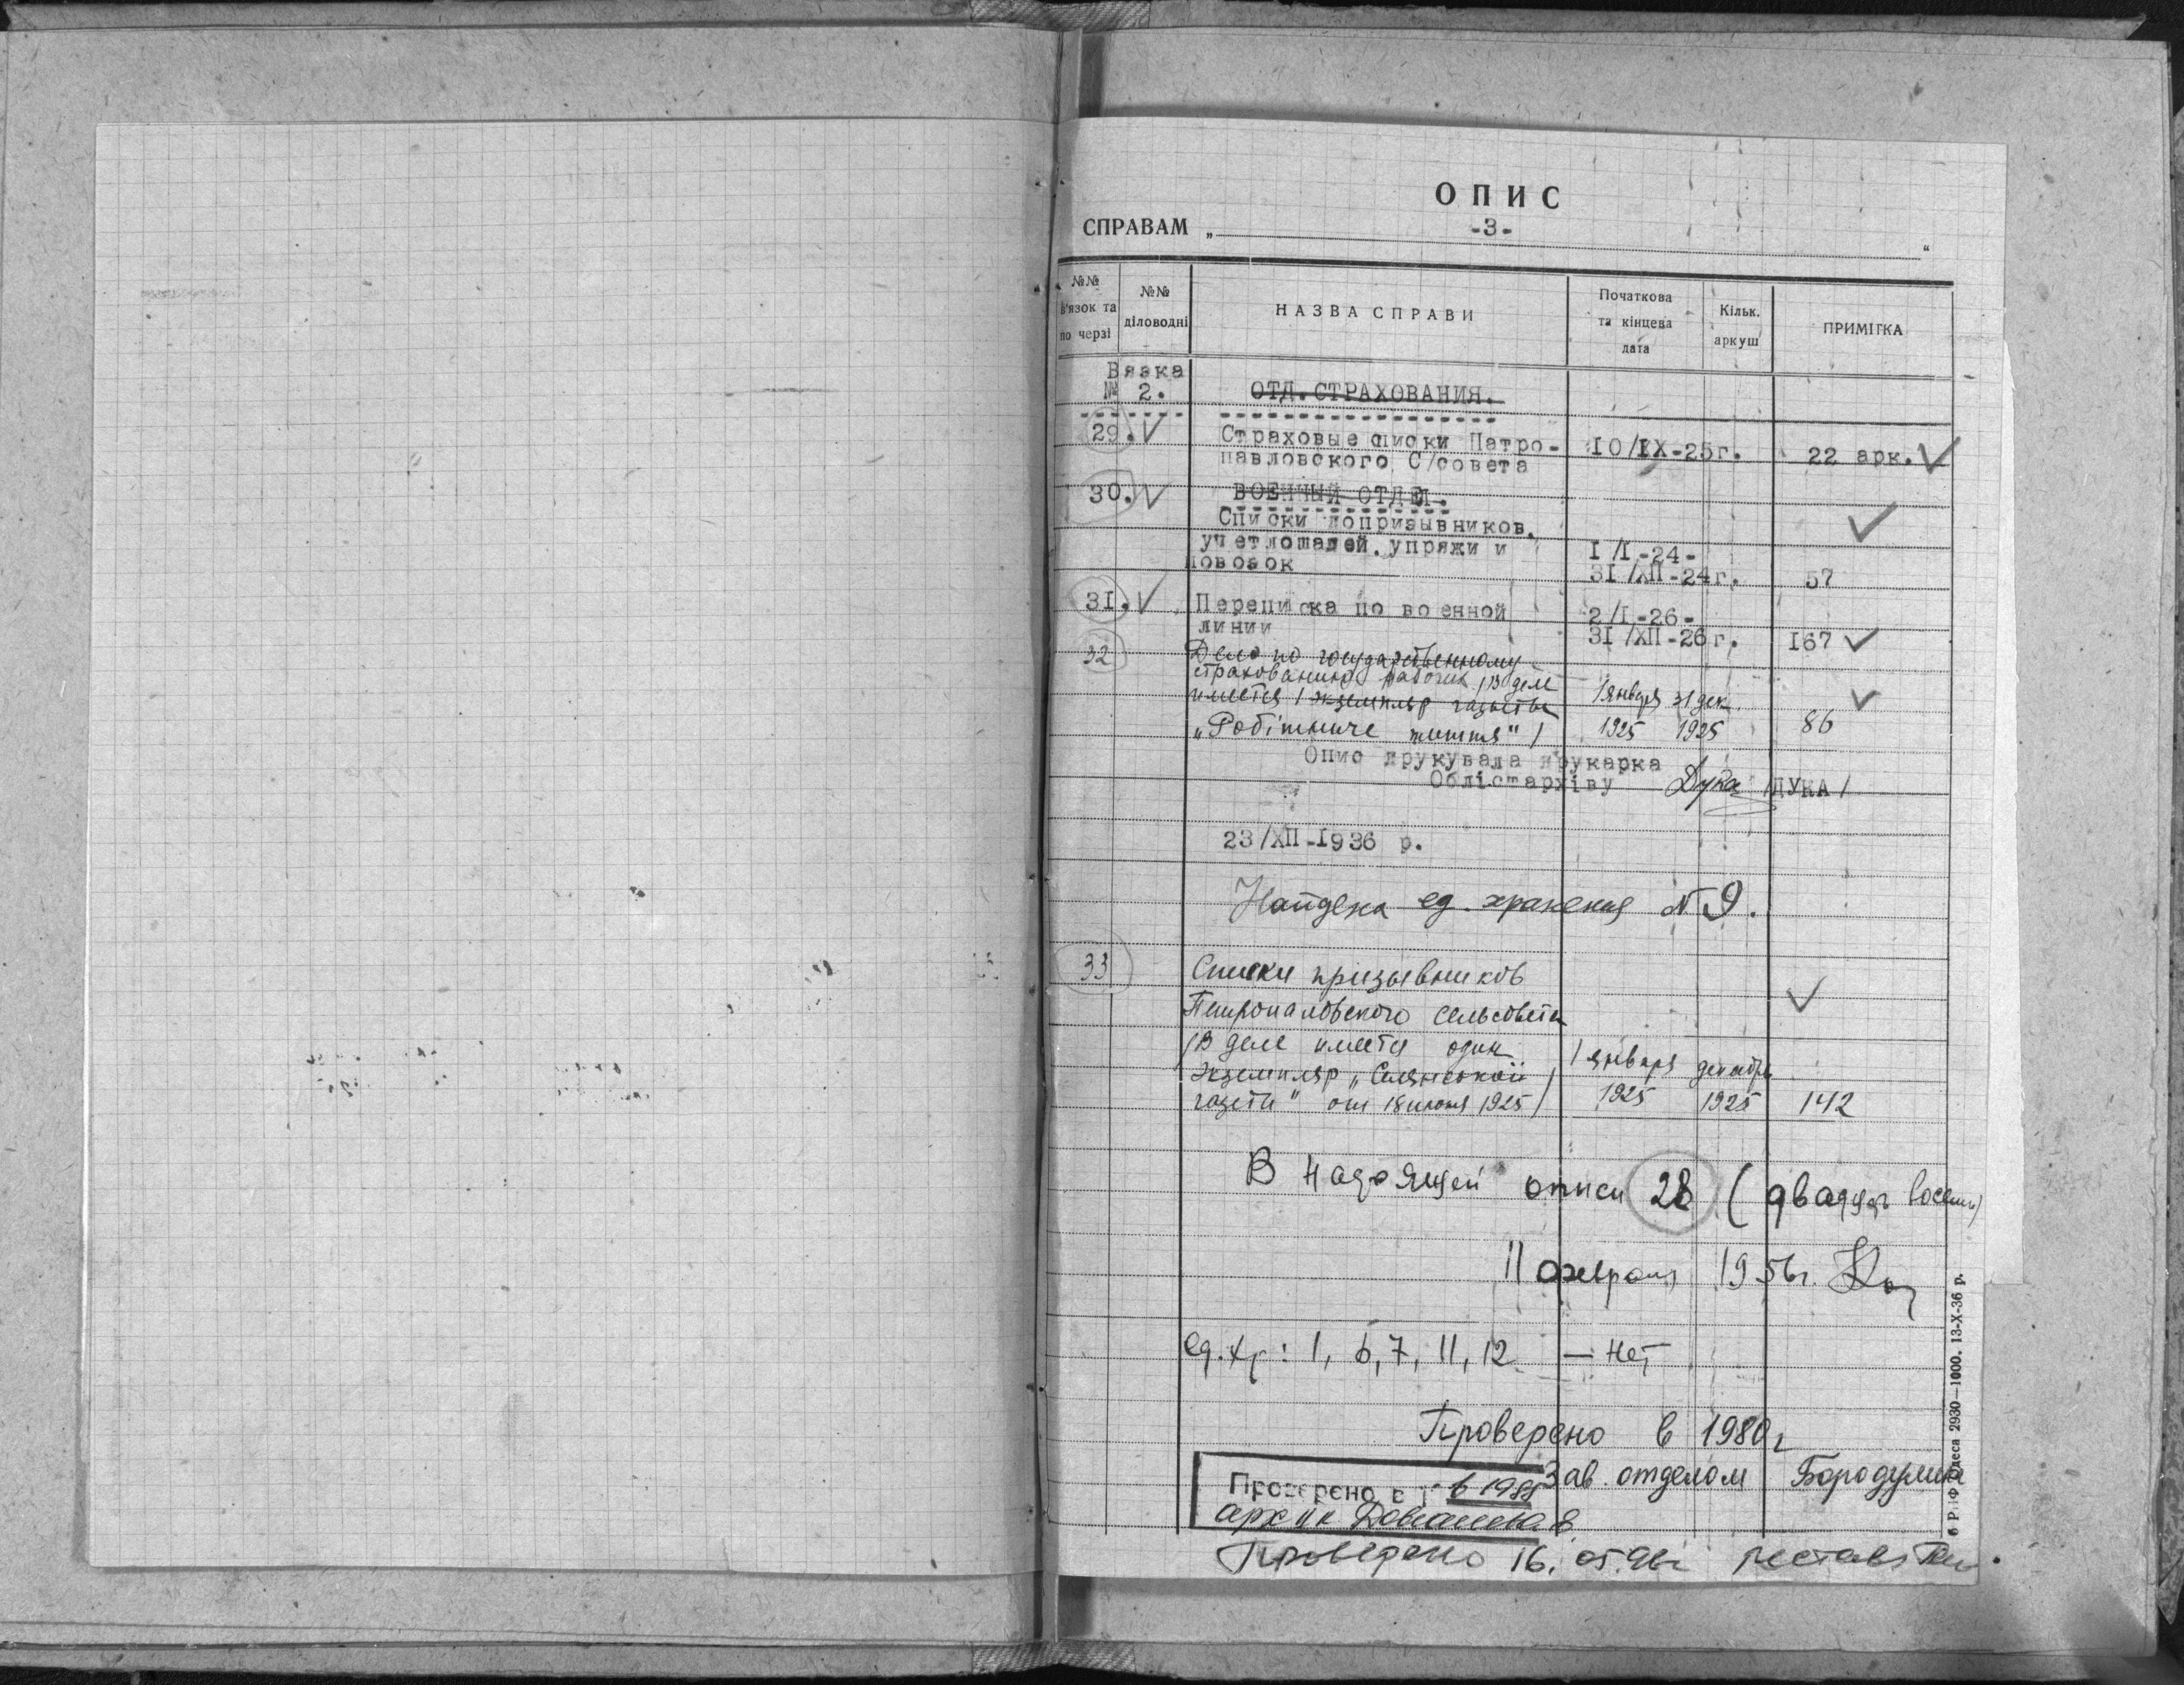 ОПИС
СПРАВАМ „ -3- “
№№ в'язок та по черзі
№№ діловодні
НАЗВА СПРАВИ
Початкова та кінцева дата
Кільк. аркуш
ПРИМІТКА
Вязка
№ 2.
ОТД.СТРАХОВАНИЯ.
29. V Страховые списки Петро- 10/IX-25г. 22 арк. V
павловского С/совета
30. V ВОЕННЫЙ ОТДЕЛ.
Списки допризывников,
учет лошадей, упряжи и I/I-24-
повозок 31/XII-24г. 57
31. V Переписка по военной 2/I-26-
линии 31/XII-26г. 167 V
32 Дело по государственному
страхованию рабочих /В деле
имеется 1 экземпляр газеты 1 января 31 дек.
„Робітниче життя" / 1925 1925 86
Опис друкувала друкарка
Облістархіву Дука /ДУКА/
23/XII-1936 р.
Найдена ед. хранения №9.
33 Списки призывников
Петропавловского сельсовета
/В деле имеется один
экземпляр „Селянської 1 января декабрь
газети" от 18 июня 1925/ 1925 1925 142
В настоящей описи 28 (двадцать восемь)
11 февраля 1956г.
ед.хр: 1, 6, 7, 11, 12 — нет
Проверено в 1980г
Зав. отделом Бородулина
Проверено в 1988
арх
Проверено 16.05.96г
Одеса 2930—1000. 13-X-36 р.